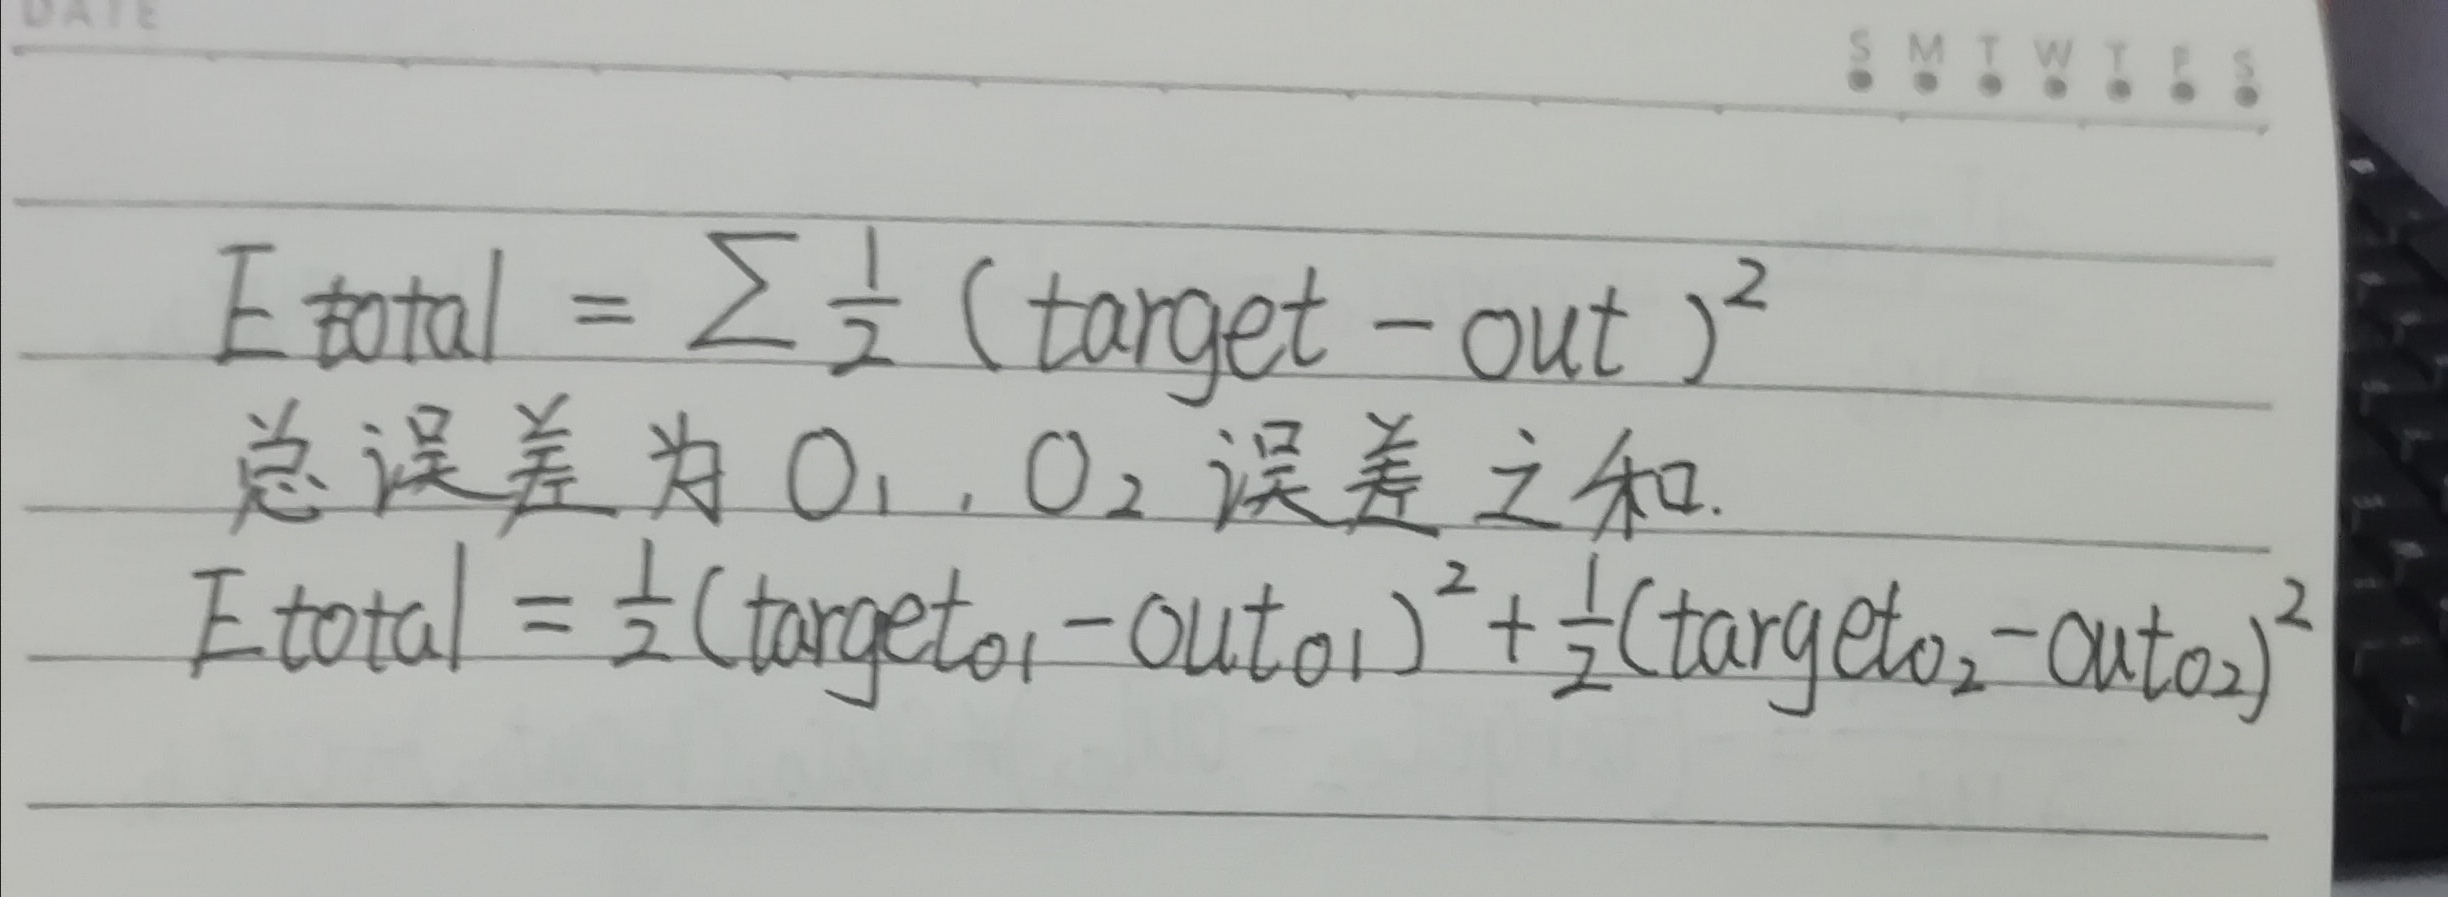 DATE
S M T W T F S
Etotal = Σ 1/2 (target - out)²
总误差为O₁,O₂误差之和.
Etotal = 1/2(targeto₁ - outo₁)² + 1/2(targeto₂ - outo₂)²